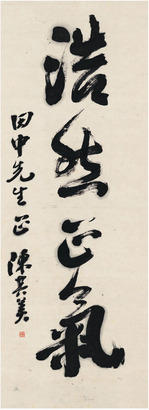 浩然正氣
田中先生正
陳其美